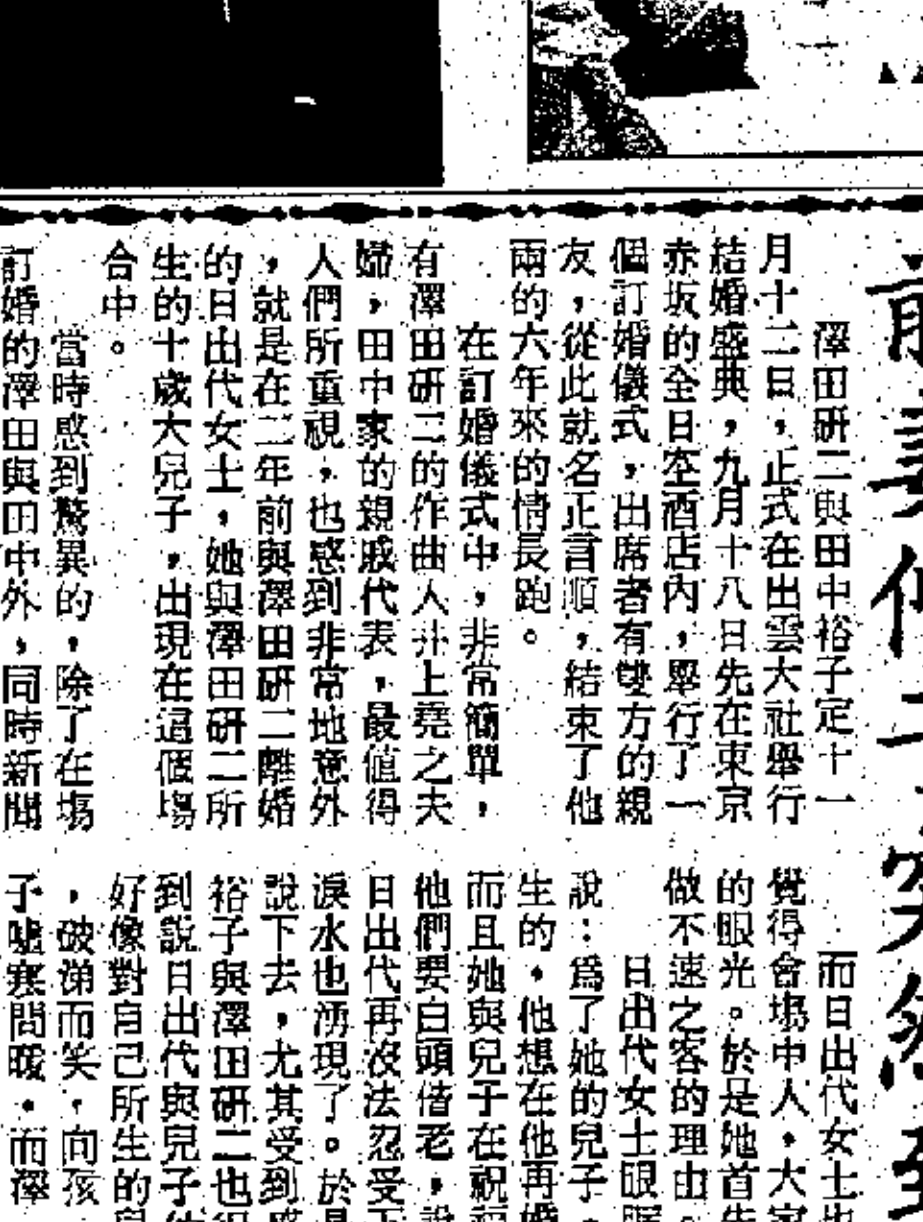 澤田研二與田中裕子定十一
月十二日，正式在出雲大社舉行
結婚盛典，九月十八日先在東京
赤坂的全日空酒店內，舉行了一
個訂婚儀式，出席者有雙方的親
友，從此就名正言順，結束了他
兩的六年來的情長跑。
在訂婚儀式中，非常簡單，
有澤田研二的作曲人井上堯之夫
婦，田中家的親戚代表，最值得
人們所重視，也感到非常地意外
，就是在二年前與澤田研二離婚
的日出代女士，她與澤田研二所
生的十歲大兒子，出現在這個場
合中。
當時感到驚異的，除了在場
訂婚的澤田與田中外，同時新聞
而日出代女士也
覺得會場中人，大家
的眼光。於是她首先
做不速之客的理由。
日出代女士眼
說：爲了她的兒子，
生的，他想在他再婚
而且她與兒子在祝福
他們要白頭偕老，說
日出代再沒法忍受下
淚水也湧現了。於是
說下去，尤其受到感
裕子與澤田研二也
到說日出代與兒子
好像對自己所生的
，破涕而笑，向孩
子噓寒問暖。而澤